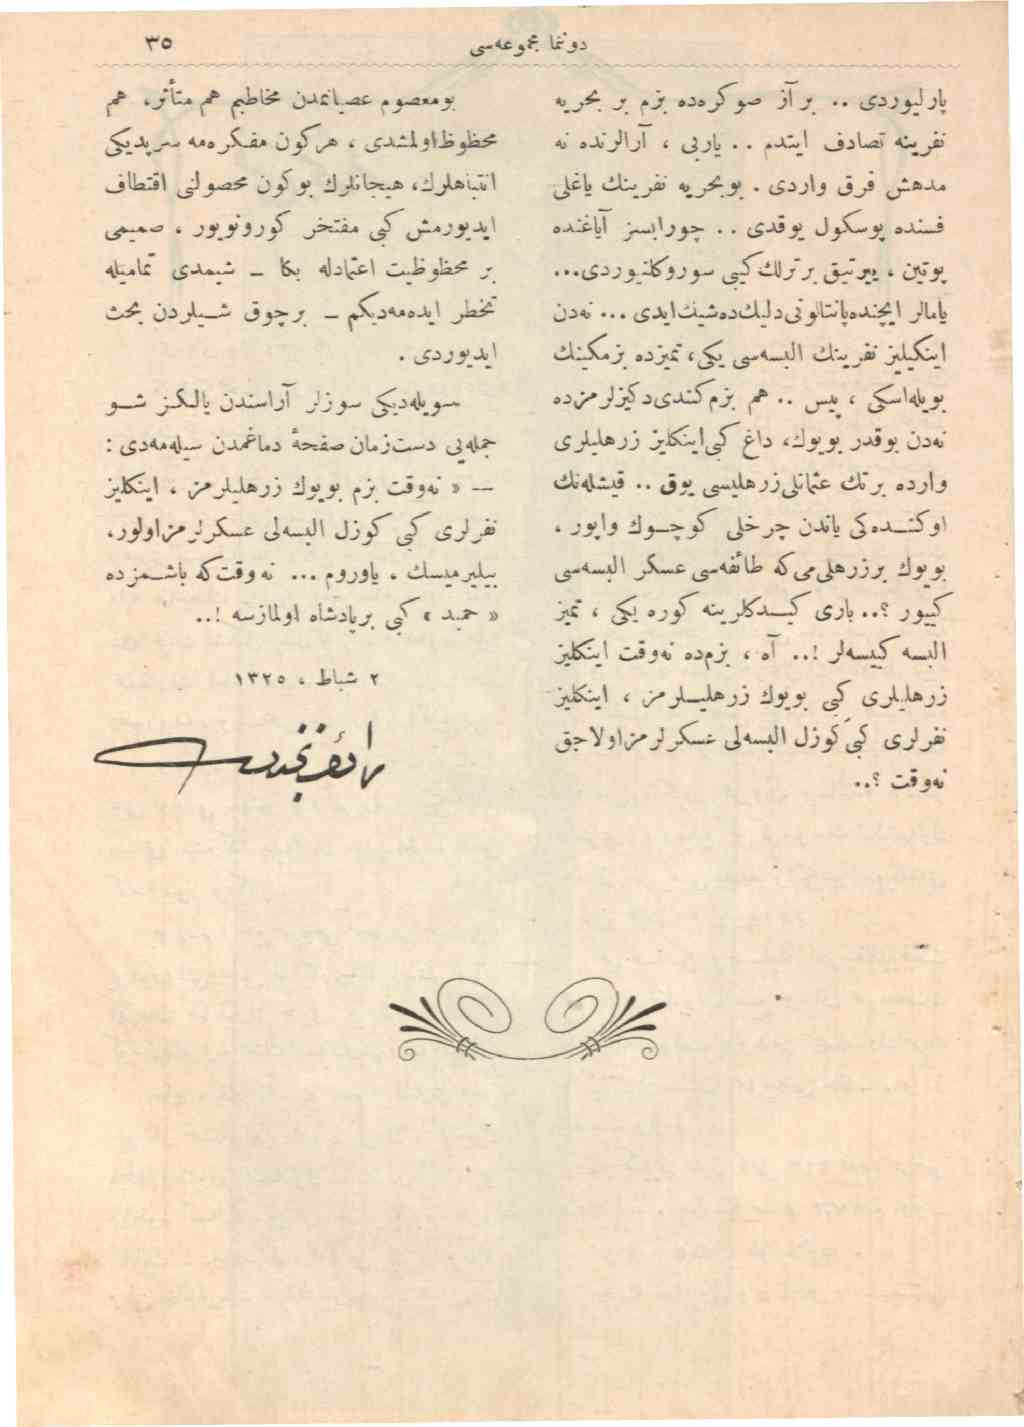 دوننما مجموعه‌سی
٣٥
پارلیوردی .. بر آز صوکره‌ده بزم بر بحریه
نفرینه تصادف ایتدم .. یاربی ، آرالرنده نه
مدهش فرق واردی . بوبحریه نفرینك یاغلی
فسنده پوسكول یوقدی .. چورابسز آیاغنده
پوتین ، ییرتیق بر ترلك كبی سوروكلنیوردی...
یامالر ایچنده پانتالونی دلیك ده‌شیك ایدی ... نه‌دن
اینكیلیز نفرینك البسه‌سی یكی، تمیزده بزمكینك
بویله اسكی ، پیس .. هم بزم كندی دكیزلرمزده
نه‌دن بوقدر بویوك، داغ كبی اینكلیز زرهلیلری
وارده برتك عثمانلی زرهلیسی یوق .. قیشله‌نك
اوكنـده‌كی یاندن چرخلی كوچـوك واپور .
بویوك بر زرهلی می كه طائفه‌سی عسكر البسه‌سی
كییور ؟.. باری كیـدكلرینه كوره یكی ، تمیز
البسه كییسه‌لر !.. آه ، بزم‌ده نه‌وقت اینكلیز
زرهلیلری كبی بویوك زرهلیـلرمز ، اینكلیز
نفرلری كبی كوزل البسه‌لی عسكرلرمز اولاجق
نه‌وقت ؟..
بومعصوم عصیانمدن مخاطبم هم متأثر، هم
محظوظ اولمشدی ، هركون مفكره‌مه سرپدیكی
انتباهلرك، هیجانلرك بوكون محصولنی اقتطاف
ایدیورمش كبی مفتخر كورونویور ، صمیمی
بر محظوظیت اعتمادله بكا ـ شیمدی تمامیله
تخطر ایده‌مه‌دیكم ـ برچوق شـیلردن بحث
ایدیوردی .
سویله‌دیكی سوزلر آراسندن یالكـز شـو
جمله‌یی دست زمان صفحهٔ دماغمدن سیله‌مه‌دی :
— « نه‌وقت بزم بویوك زرهلیلرمز ، اینكلیز
نفرلری كبی كوزل البسه‌لی عسكرلرمز اولور،
بیلیرمیسك ، یاوروم ... نه وقت كه باشـمزده
« حمید » كبی بر پادشاه اولمازسه !..
٢ شباط ، ١٣٢٥
رائف نجدت